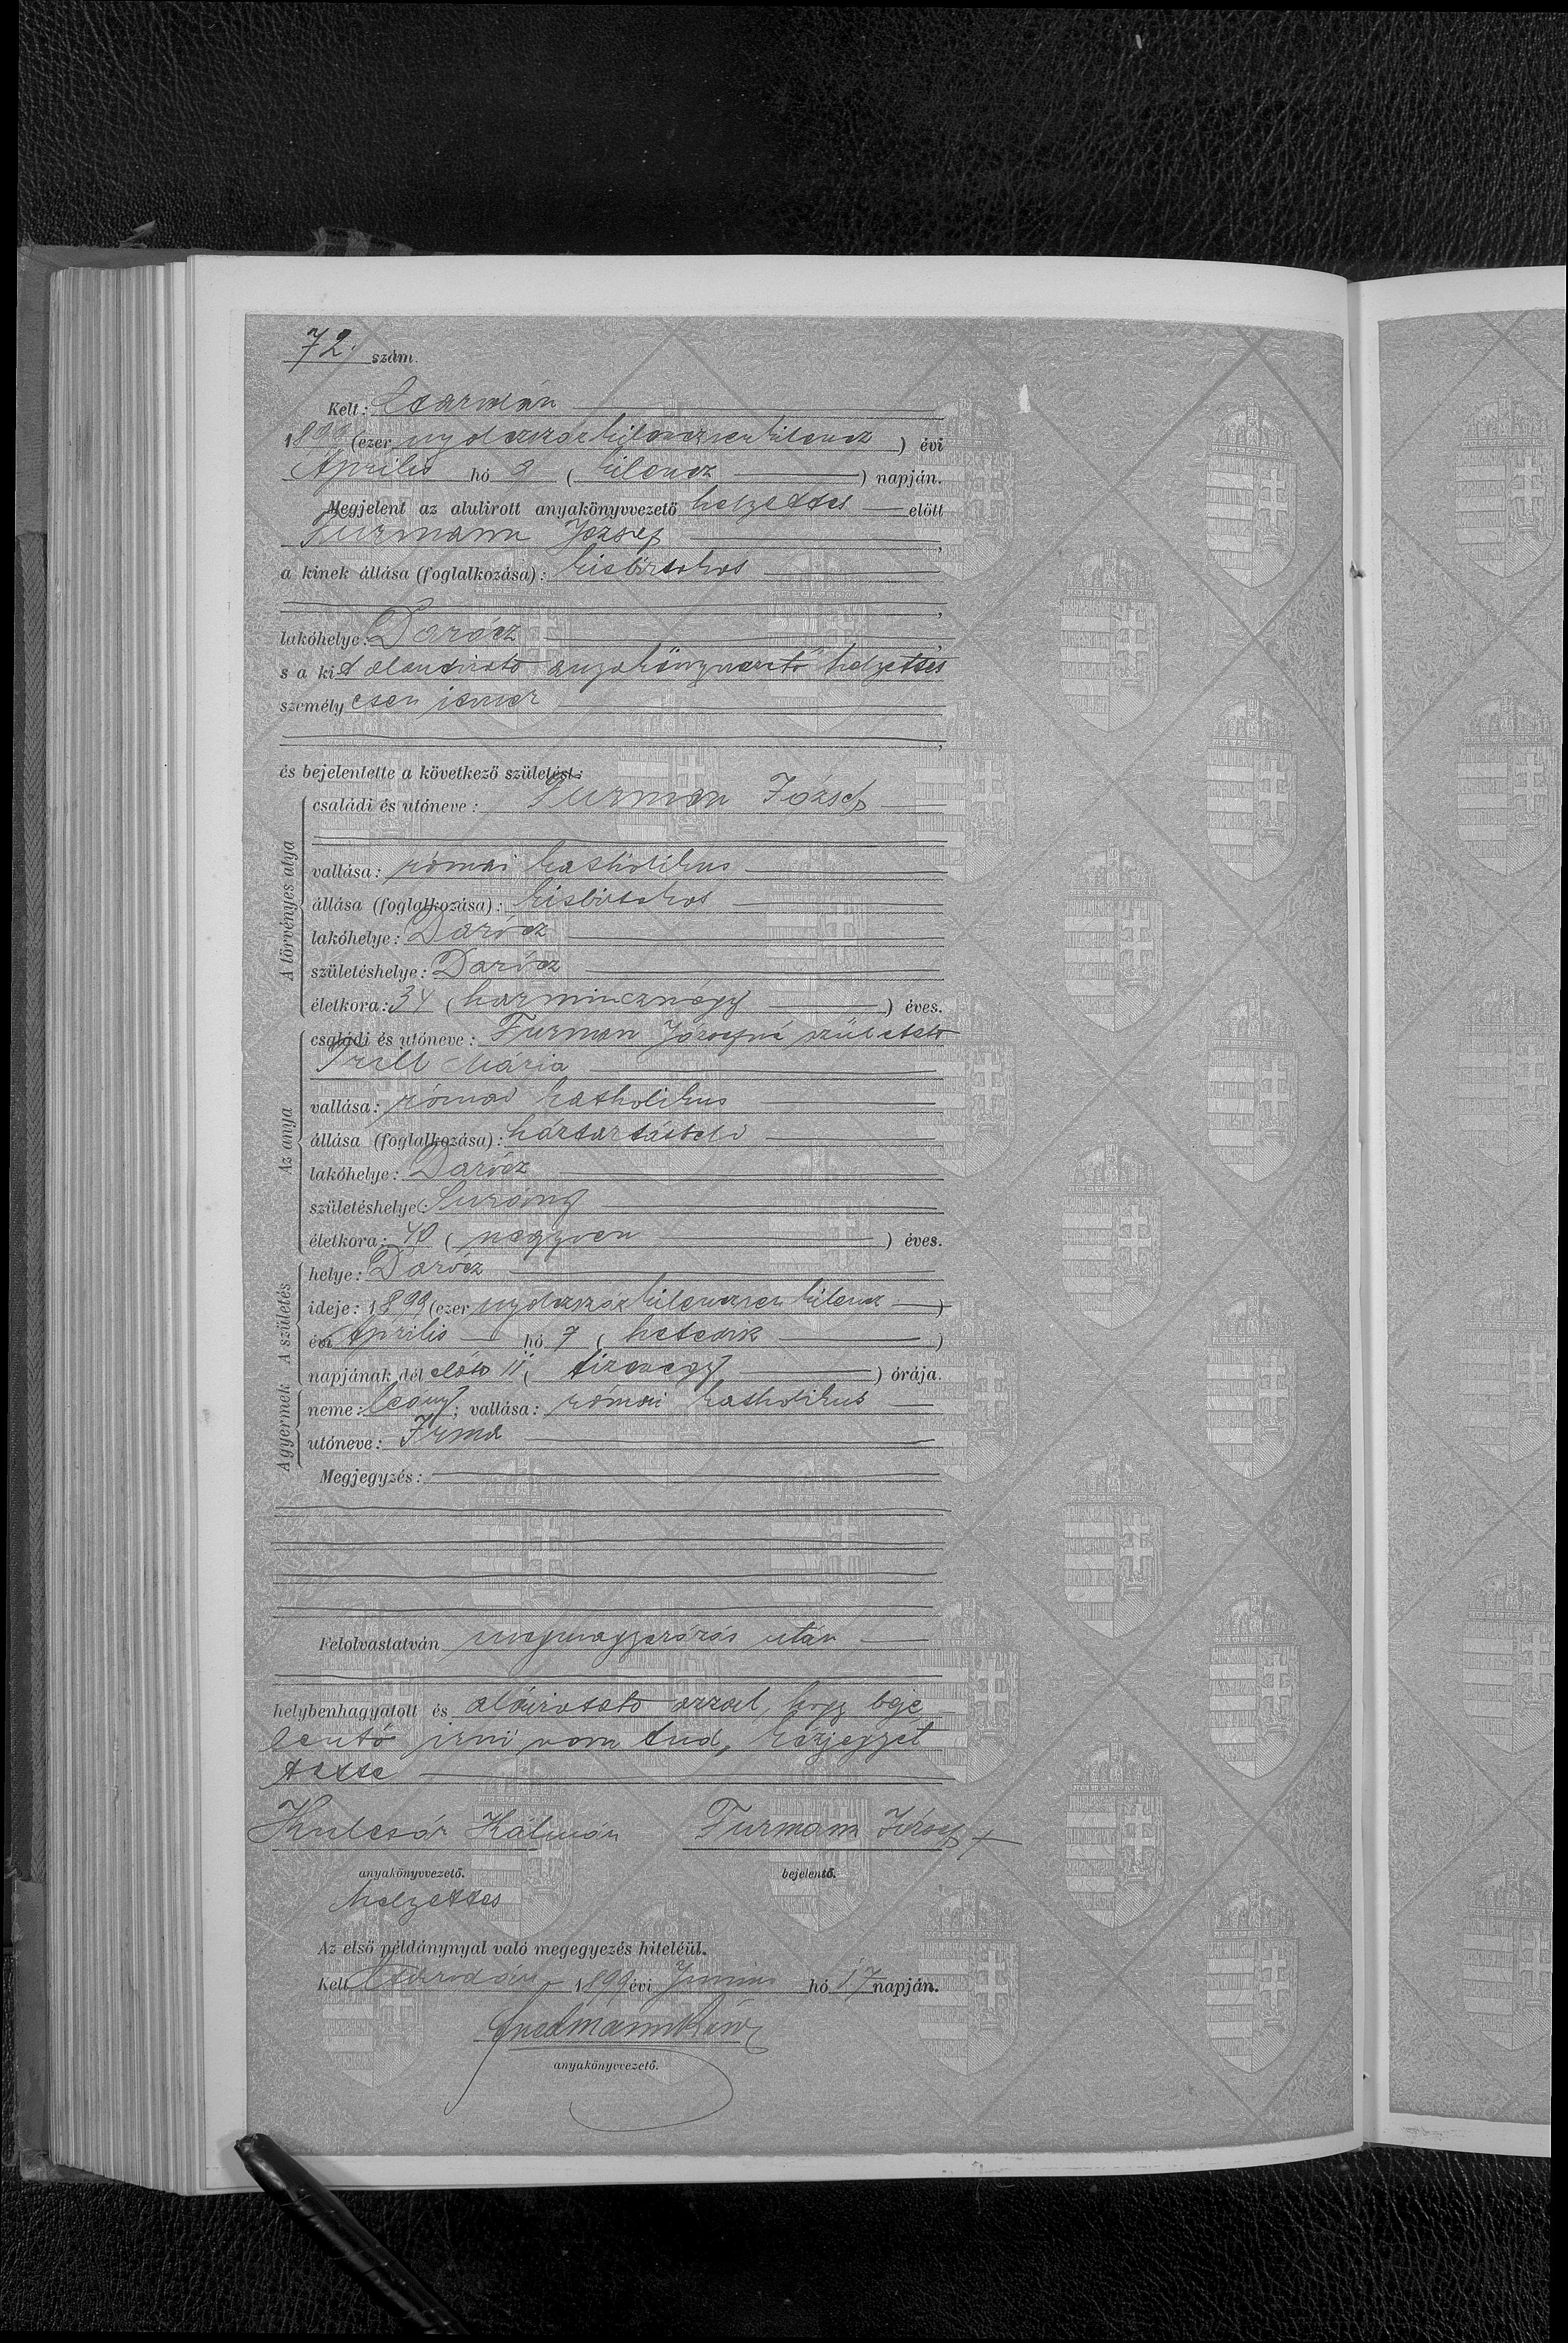 72. szám.
Kelt:
1899 (ezer nyolczszázkilenczvenkilencz) évi
Április hó 9 (kilencz) napján.
Megjelent az alulirott anyakönyvvezető helyettes előtt
Furmann József,
a kinek állása (foglalkozása): kisbirtokos
lakóhelye: Darócz
s a kit alantirott anyakönyvvezető helyettes
személyesen ismer
és bejelentette a következő születést:
A törvényes atya
családi és utóneve: Furman József
vallása: római katholikus
állása (foglalkozása): kisbirtokos
lakóhelye: Darócz
születéshelye: Darócz
életkora: 34 (harmincznégy) éves.
Az anya
családi és utóneve: Furman Józsefné született
Prill Mária
vallása: római katholikus
állása (foglalkozása): háztartásbeli
lakóhelye: Darócz
születéshelye:
életkora: 40 (negyven) éves.
A születés
helye: Darócz
ideje: 1899 (ezer nyolczszázkilenczvenkilencz)
évi Április hó 7 (hetedik)
napjának dél előtt 11 (tizenegy) órája.
A gyermek
neme: leány; vallása: római katholikus
utóneve: Irma
Megjegyzés:
Felolvastatván megmagyarázás után
helybenhagyatott és aláiratott azzal, hogy beje
lentő irni nem tud, kézjegyét
tette
Kulcsár Kálmán Furmann József +
anyakönyvvezető. bejelentő.
helyettes
Az első példánynyal való megegyezés hiteléül.
Kelt 1899 évi Junius hó 17 napján.
anyakönyvvezető.